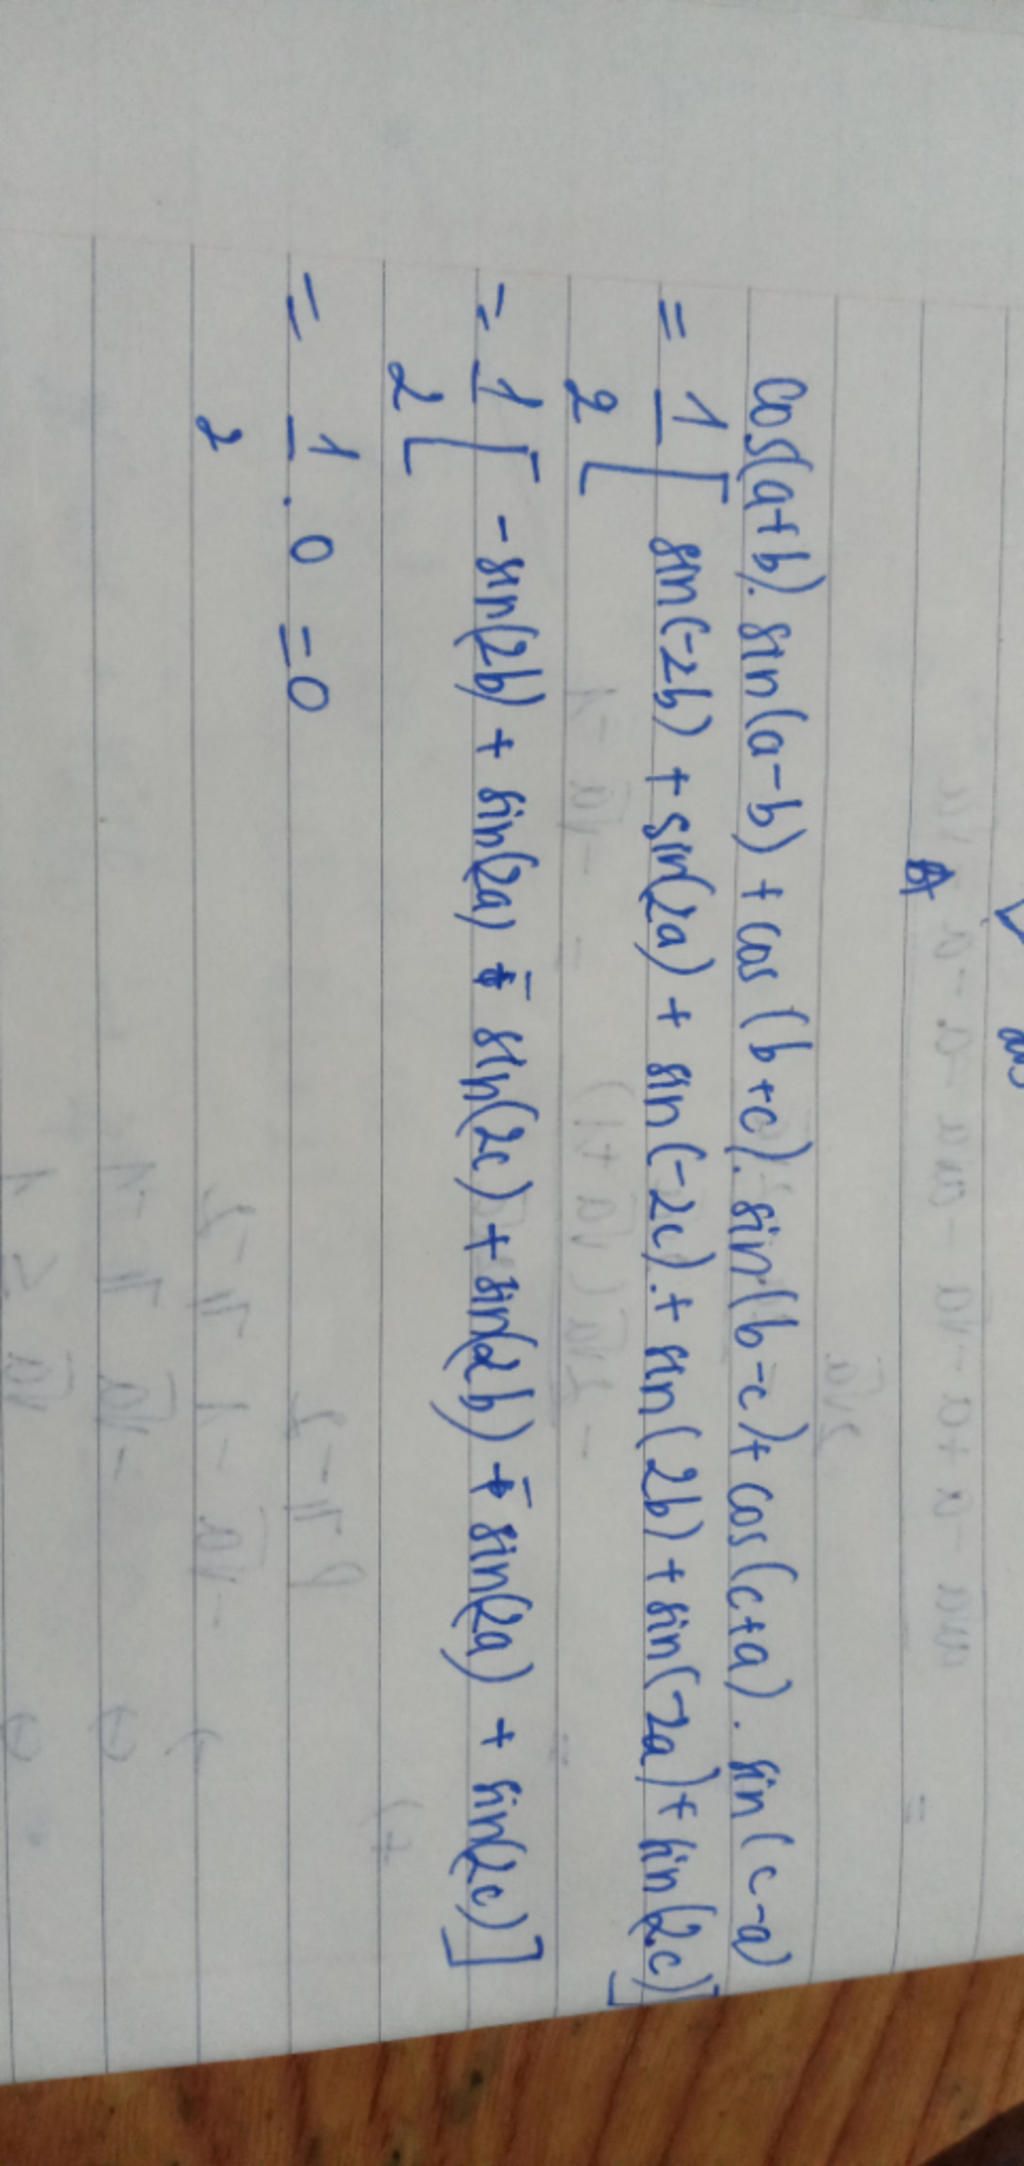 cos(a+b). sin(a-b) + cos (b+c). sin(b-c)+ cos(c+a). sin(c-a)
= 1/2 [ sin(-2b) + sin(2a) + sin(-2c).+ sin(2b) + sin(-2a)+ sin(2c)]
= 1/2 [ -sin(2b) + sin(2a) - sin(2c) + sin(2b) - sin(2a) + sin(2c)]
= 1/2 . 0 = 0